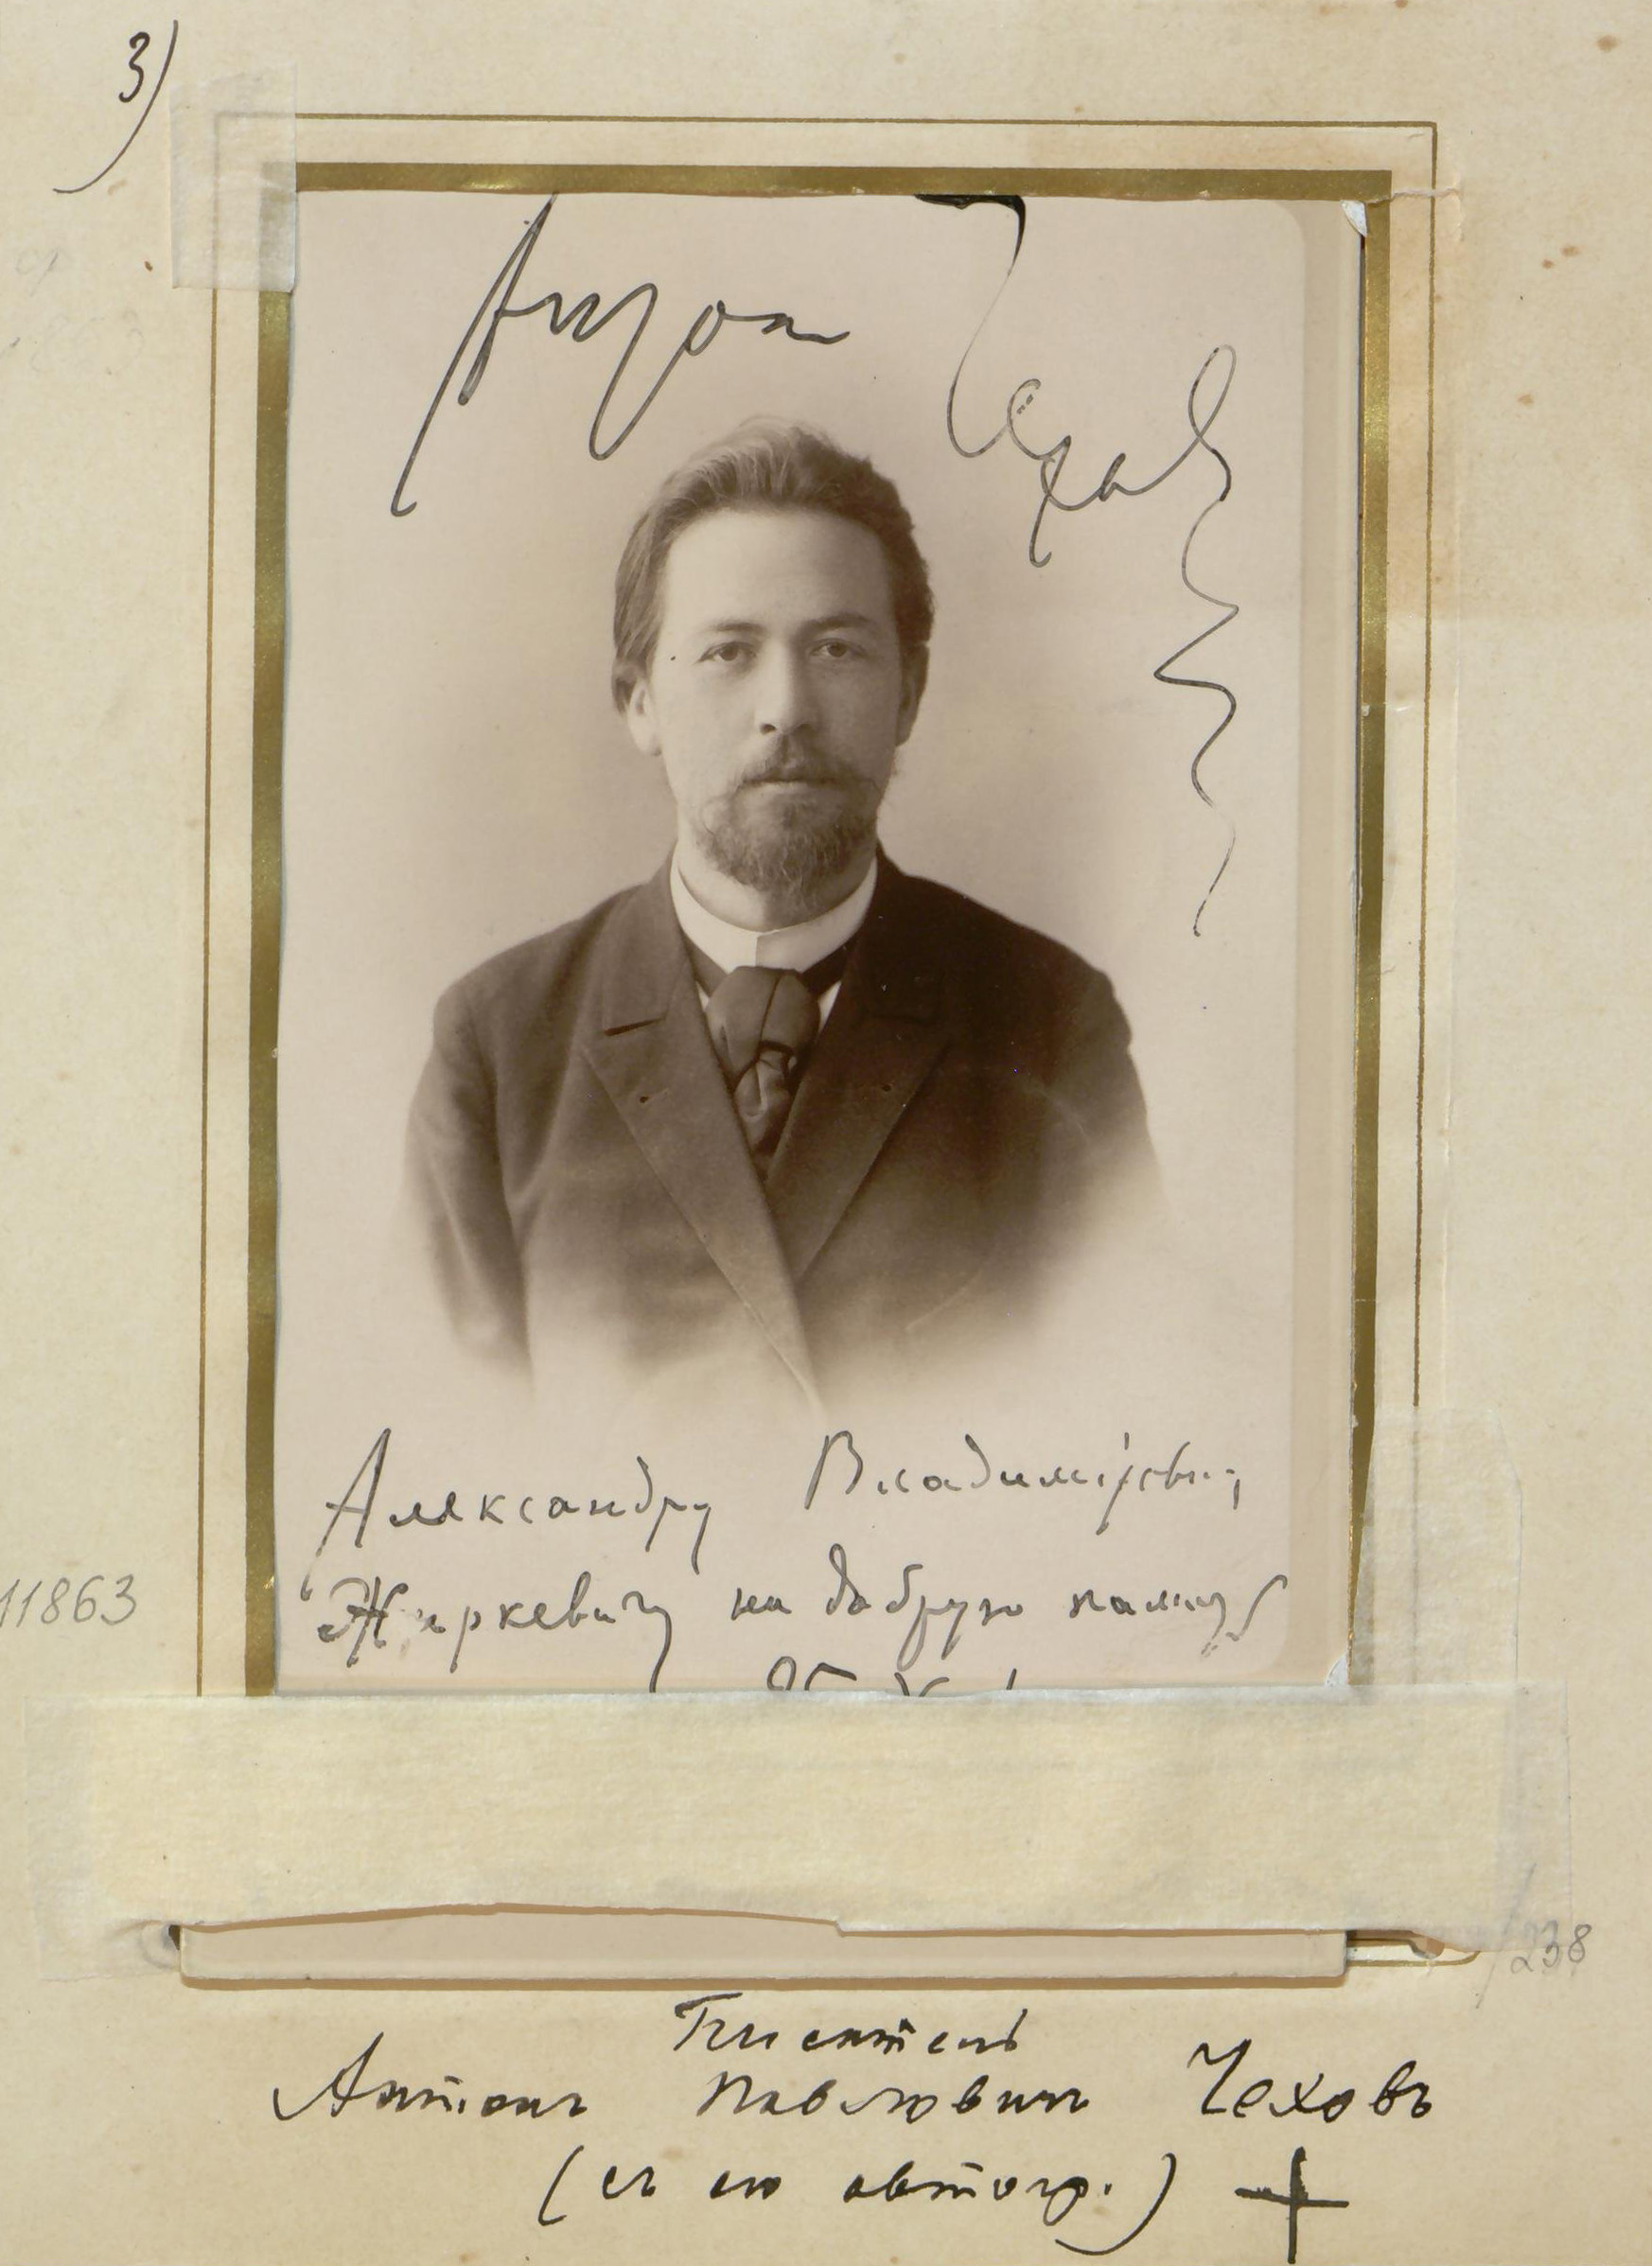 3)
Антон Чехов
Александру Владиміровичу
Жиркевичу на добрую память
11863
238
Писатель
Антонъ Павловичъ Чеховъ
(съ его автогр.) +